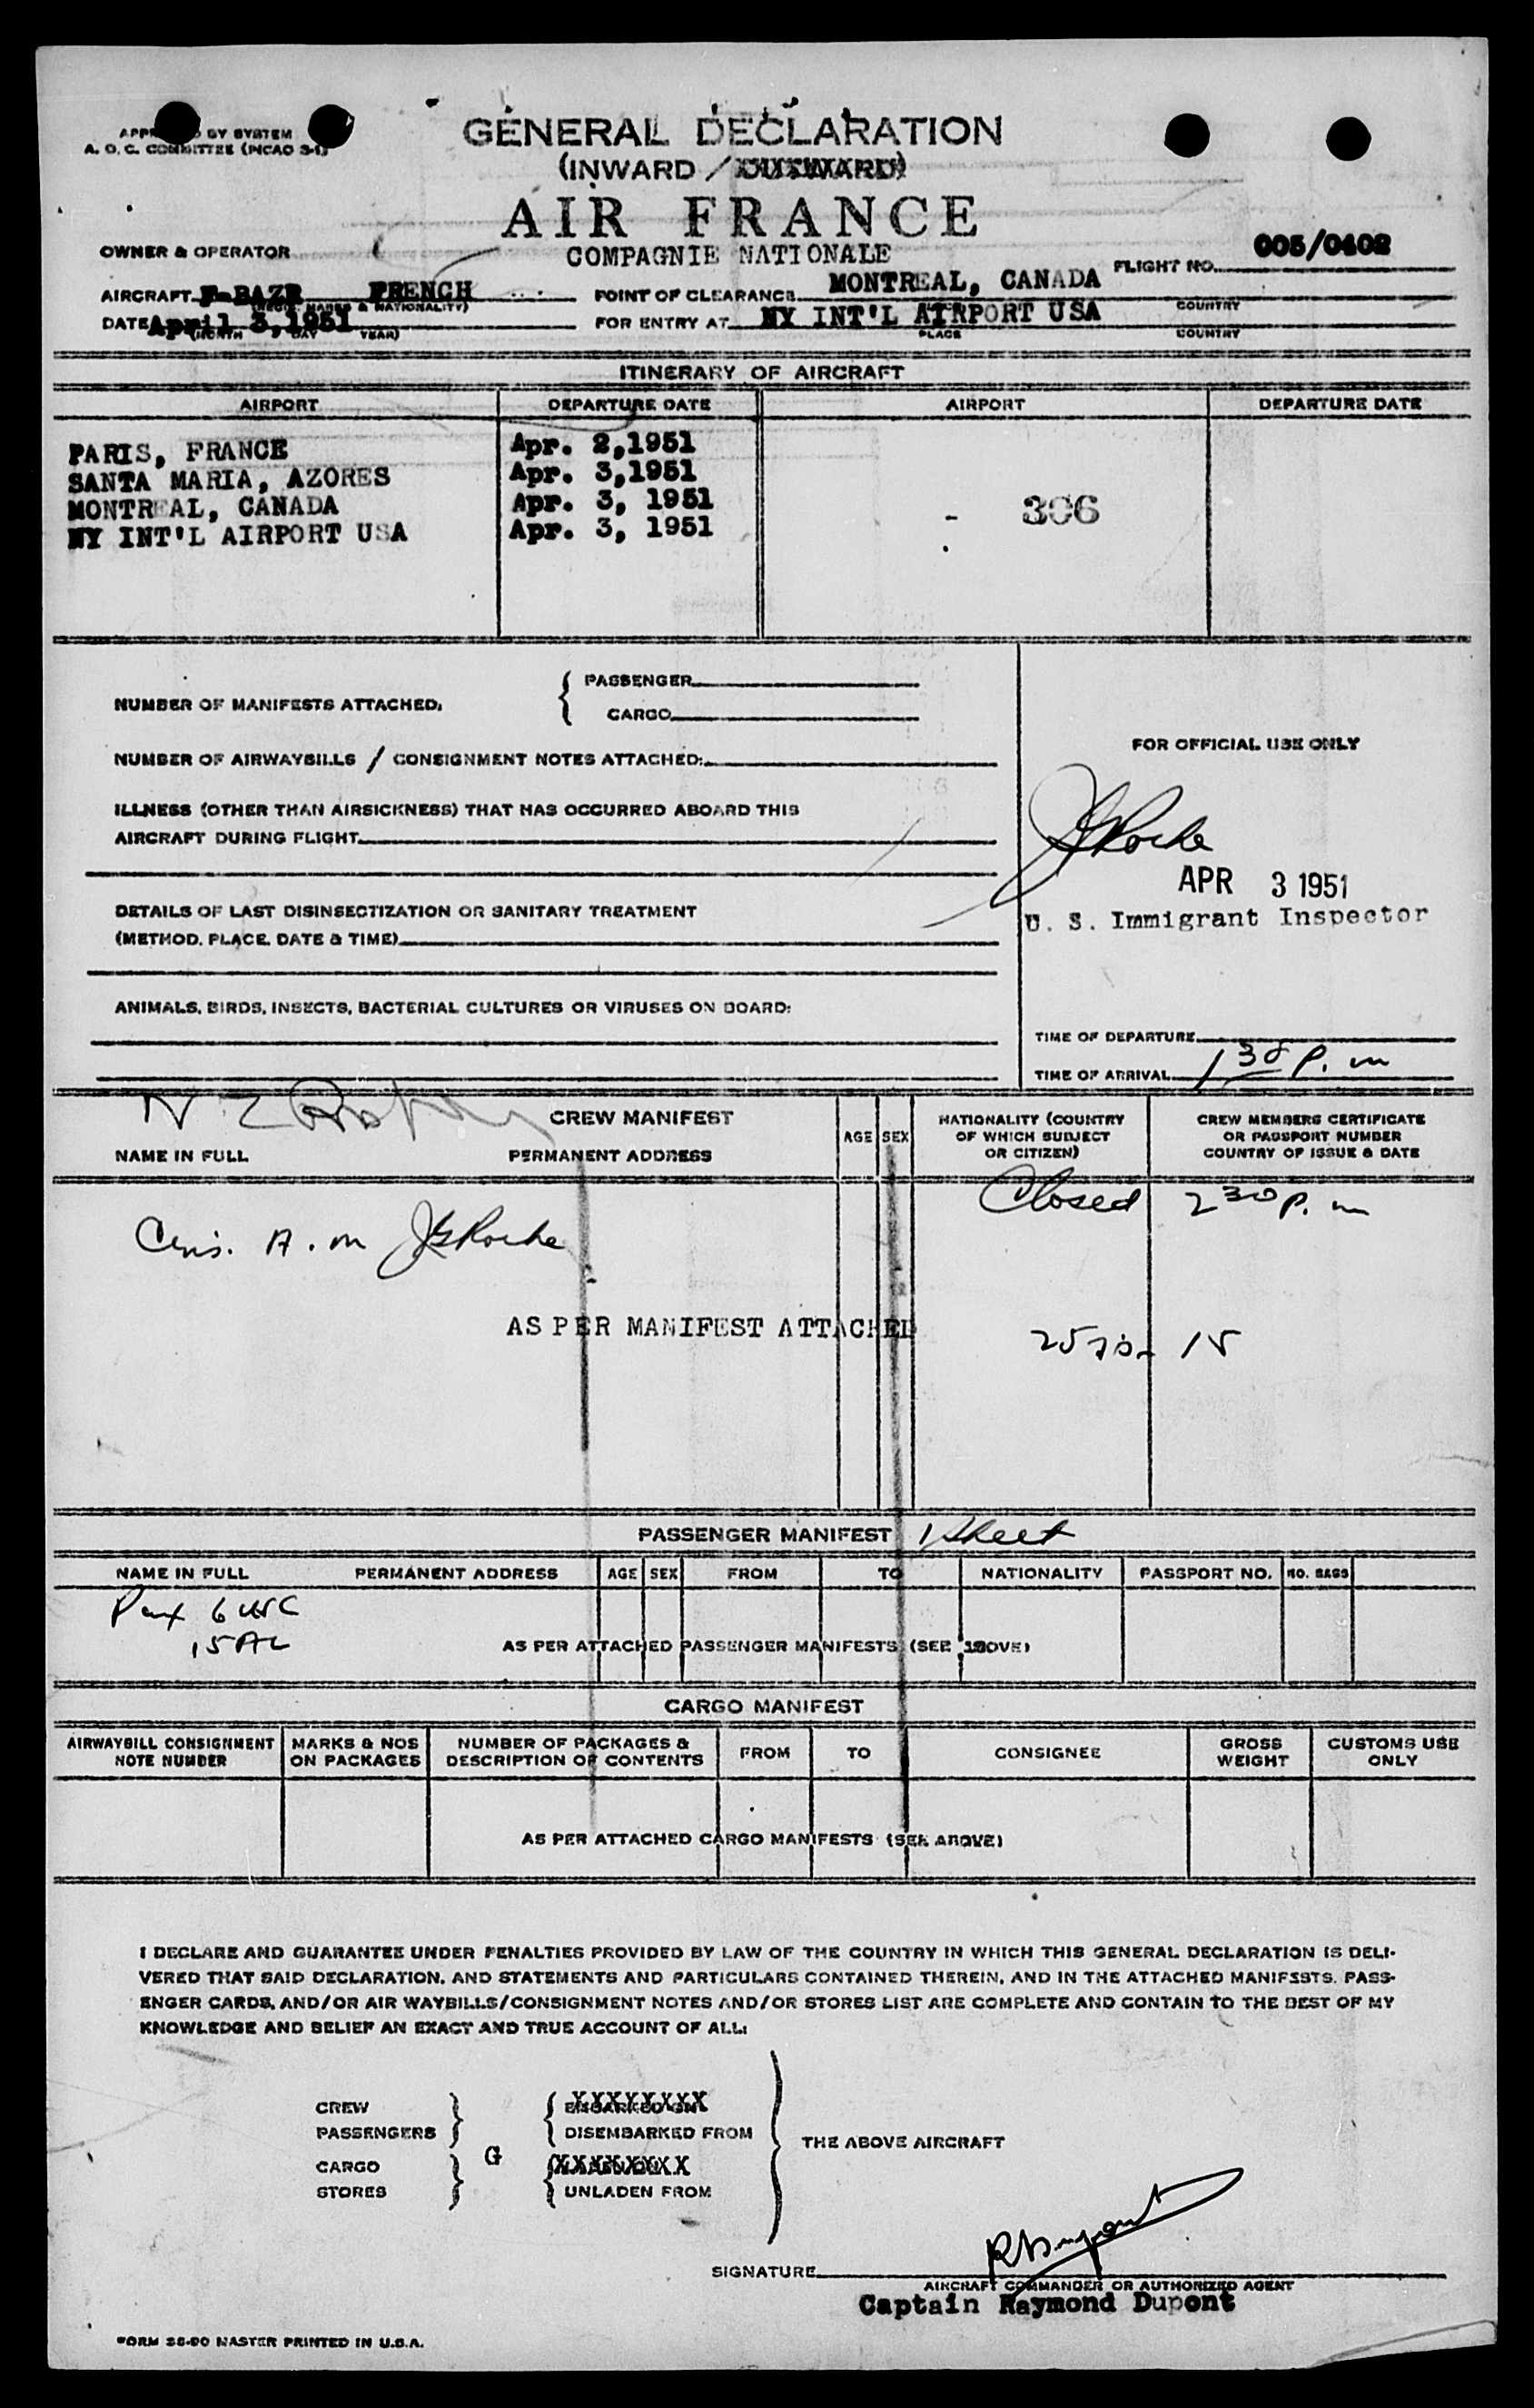 APPROVED BY SYSTEM
A. O. C. COMMITTEE (PICAO 3-1)
GENERAL DECLARATION
(INWARD / OUTWARD)
AIR FRANCE
OWNER & OPERATOR COMPAGNIE NATIONALE
FLIGHT NO. 005/0402
AIRCRAFT F-BAZR FRENCH
(REG'N. MARKS & NATIONALITY)
POINT OF CLEARANCE MONTREAL, CANADA
COUNTRY
DATE April 3,1951
(MONTH DAY YEAR)
FOR ENTRY AT NY INT'L AIRPORT USA
PLACE COUNTRY
ITINERARY OF AIRCRAFT
AIRPORT DEPARTURE DATE AIRPORT DEPARTURE DATE
PARIS, FRANCE Apr. 2,1951
SANTA MARIA, AZORES Apr. 3,1951
MONTREAL, CANADA Apr. 3, 1951
NY INT'L AIRPORT USA Apr. 3, 1951
- 306
NUMBER OF MANIFESTS ATTACHED,
PASSENGER
CARGO
NUMBER OF AIRWAYBILLS / CONSIGNMENT NOTES ATTACHED:
ILLNESS (OTHER THAN AIRSICKNESS) THAT HAS OCCURRED ABOARD THIS
AIRCRAFT DURING FLIGHT
DETAILS OF LAST DISINSECTIZATION OR SANITARY TREATMENT
(METHOD, PLACE, DATE & TIME)
ANIMALS, BIRDS, INSECTS, BACTERIAL CULTURES OR VIRUSES ON BOARD:
FOR OFFICIAL USE ONLY
JGRoche
APR 3 1951
U. S. Immigrant Inspector
TIME OF DEPARTURE
TIME OF ARRIVAL 1 30 P. m
CREW MANIFEST
NAME IN FULL PERMANENT ADDRESS
AGE SEX
NATIONALITY (COUNTRY
OF WHICH SUBJECT
OR CITIZEN)
CREW MEMBERS CERTIFICATE
OR PASSPORT NUMBER
COUNTRY OF ISSUE & DATE
Closed 2 30 p. m
A. m JGRoche
AS PER MANIFEST ATTACHED
15
PASSENGER MANIFEST 1 sheet
NAME IN FULL PERMANENT ADDRESS AGE SEX FROM TO NATIONALITY PASSPORT NO. NO. BAGS
Pax 6 USC
15 AL
AS PER ATTACHED PASSENGER MANIFESTS (SEE ABOVE)
CARGO MANIFEST
AIRWAYBILL CONSIGNMENT
NOTE NUMBER
MARKS & NOS
ON PACKAGES
NUMBER OF PACKAGES &
DESCRIPTION OF CONTENTS
FROM TO CONSIGNEE
GROSS
WEIGHT
CUSTOMS USE
ONLY
AS PER ATTACHED CARGO MANIFESTS (SEE ABOVE)
I DECLARE AND GUARANTEE UNDER PENALTIES PROVIDED BY LAW OF THE COUNTRY IN WHICH THIS GENERAL DECLARATION IS DELI-
VERED THAT SAID DECLARATION, AND STATEMENTS AND PARTICULARS CONTAINED THEREIN, AND IN THE ATTACHED MANIFESTS, PASS-
ENGER CARDS, AND/OR AIR WAYBILLS/CONSIGNMENT NOTES AND/OR STORES LIST ARE COMPLETE AND CONTAIN TO THE BEST OF MY
KNOWLEDGE AND BELIEF AN EXACT AND TRUE ACCOUNT OF ALL:
CREW EMBARKED ON
PASSENGERS DISEMBARKED FROM
G
THE ABOVE AIRCRAFT
CARGO
STORES UNLADEN FROM
SIGNATURE RDupont
AIRCRAFT COMMANDER OR AUTHORIZED AGENT
Captain Raymond Dupont
FORM 36-00 MASTER PRINTED IN U.S.A.